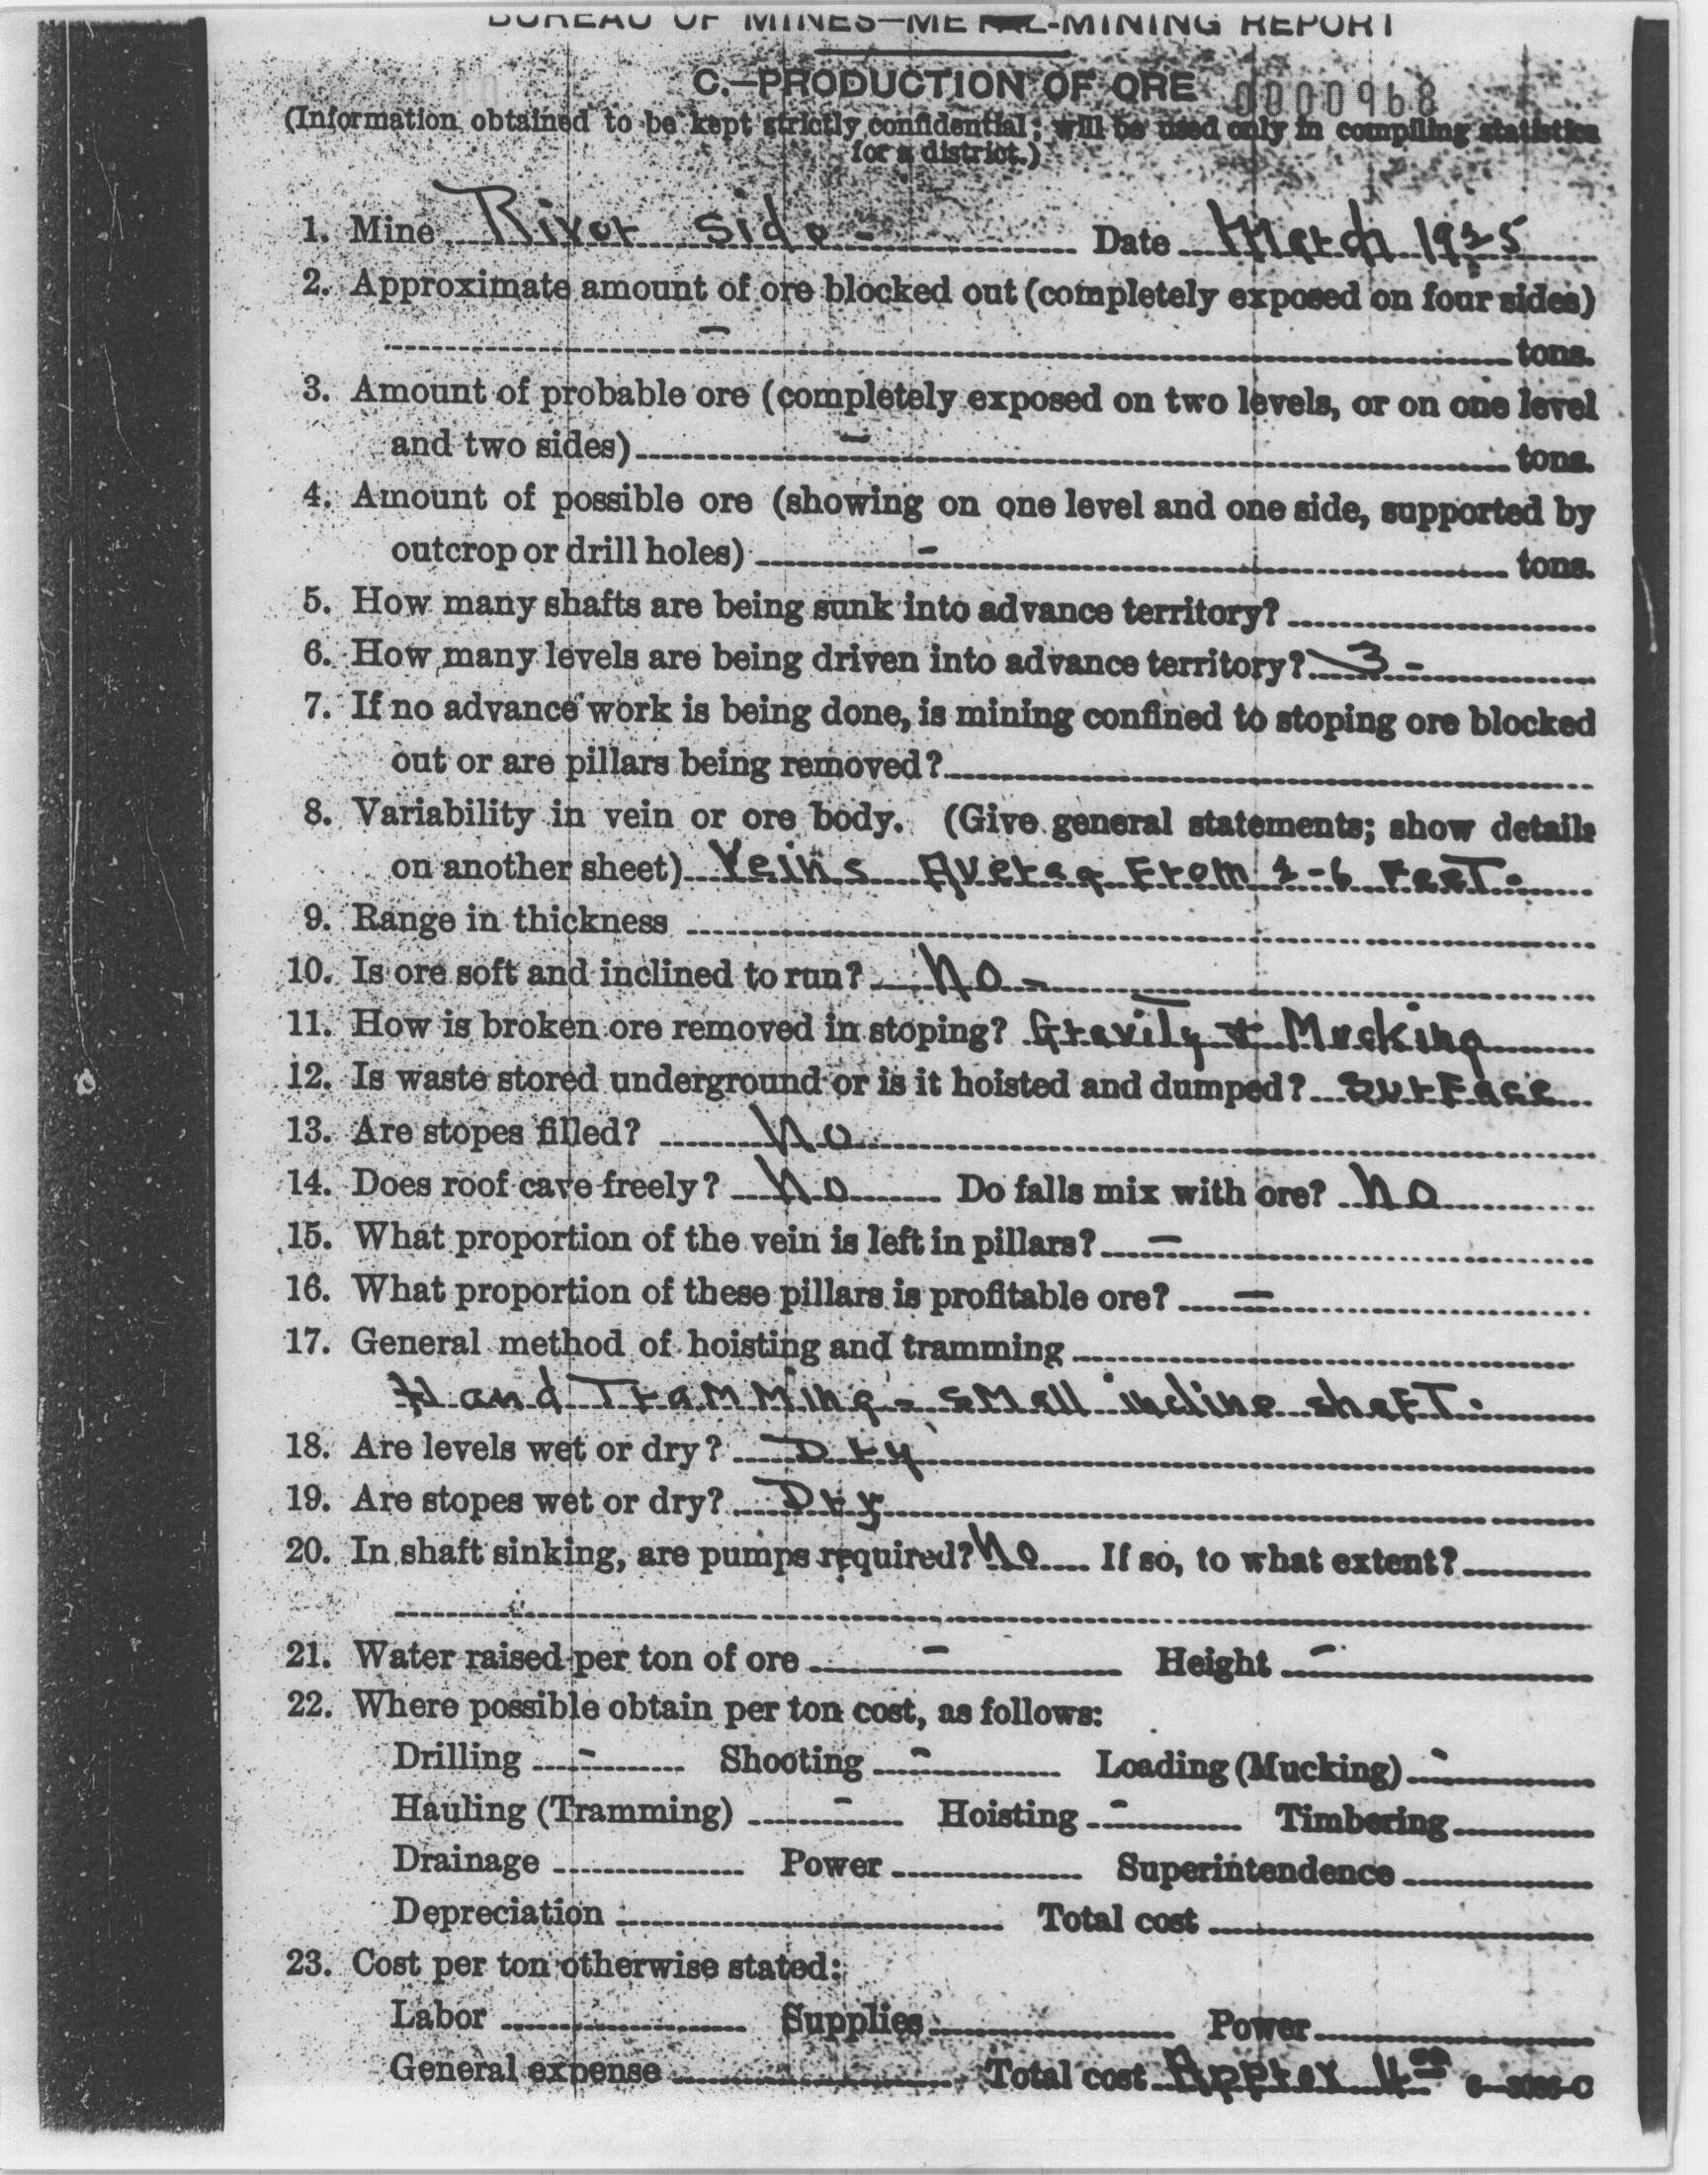 BUREAU OF MINES—METAL-MINING REPORT
C.—PRODUCTION OF ORE 0000968
(Information obtained to be kept strictly confidential; will be used only in compiling statistics
for a district.)
1. Mine River Side - Date March 1925
2. Approximate amount of ore blocked out (completely exposed on four sides)
- tons.
3. Amount of probable ore (completely exposed on two levels, or on one level
and two sides) - tons.
4. Amount of possible ore (showing on one level and one side, supported by
outcrop or drill holes) - tons.
5. How many shafts are being sunk into advance territory?
6. How many levels are being driven into advance territory? 3 -
7. If no advance work is being done, is mining confined to stoping ore blocked
out or are pillars being removed?
8. Variability in vein or ore body. (Give general statements; show details
on another sheet) Veins Averag From 2-6 Feet.
9. Range in thickness
10. Is ore soft and inclined to run? No -
11. How is broken ore removed in stoping? Gravity + Mucking
12. Is waste stored underground or is it hoisted and dumped? Surface
13. Are stopes filled? No
14. Does roof cave freely? No Do falls mix with ore? No
15. What proportion of the vein is left in pillars? -
16. What proportion of these pillars is profitable ore? -
17. General method of hoisting and tramming
Hand Tramming - small incline shaft.
18. Are levels wet or dry? Dry
19. Are stopes wet or dry? Dry
20. In shaft sinking, are pumps required? No If so, to what extent?
21. Water raised per ton of ore - Height -
22. Where possible obtain per ton cost, as follows:
Drilling - Shooting - Loading (Mucking) -
Hauling (Tramming) - Hoisting - Timbering
Drainage Power Superintendence
Depreciation Total cost
23. Cost per ton otherwise stated:
Labor Supplies Power
General expense Total cost Approx 4.00